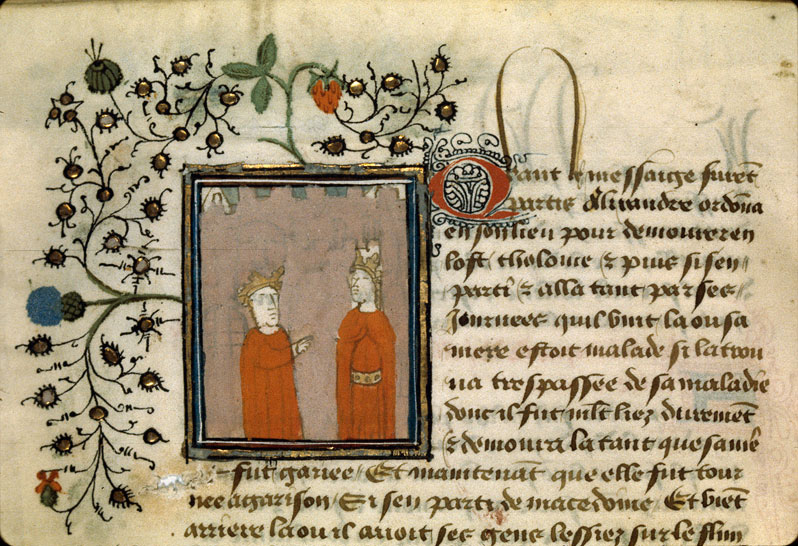 Quant le messaige furēt
partis Alixandre ordōna
en son lieu pour demourer en
lost tholome & puis si sen
parti & alla tant par ses
Journees quil vint la ou sa
mere estoit malade si la trou
ua trespassee de sa maladie
donc il fut mlt liez duremēt
& demoura la tant que sa mē
fut gariee / Et maintenāt que elle fut tour
nee a garison / Si sen parti de macedoine / Et viēt
arriere la ou il auoit ses gens lessiez sur le flun